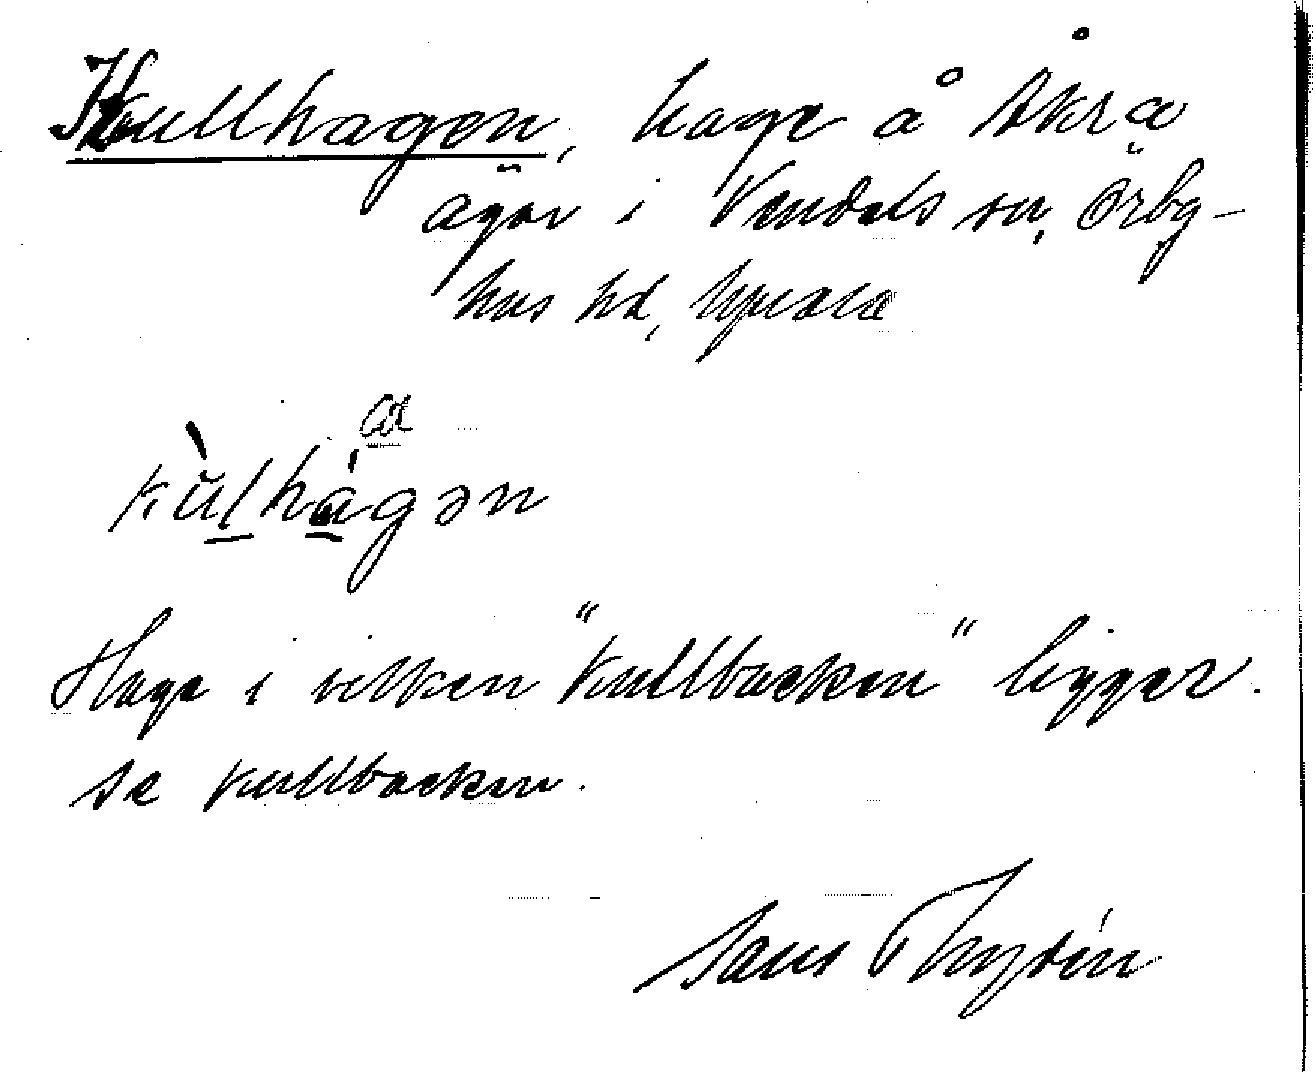 Kullhagen, hage å Åkra
ägor i Vendels sn, Örby-
hus hd, Upsala
a
kùlhágən
Hage i vilken "Kullbacken" ligger.
Se Kullbacken.
Thydén